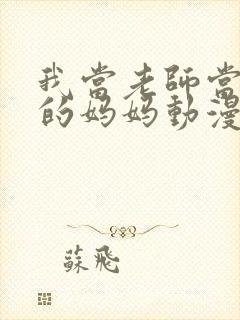 我當老師當
的媽媽動漫
蘇飛